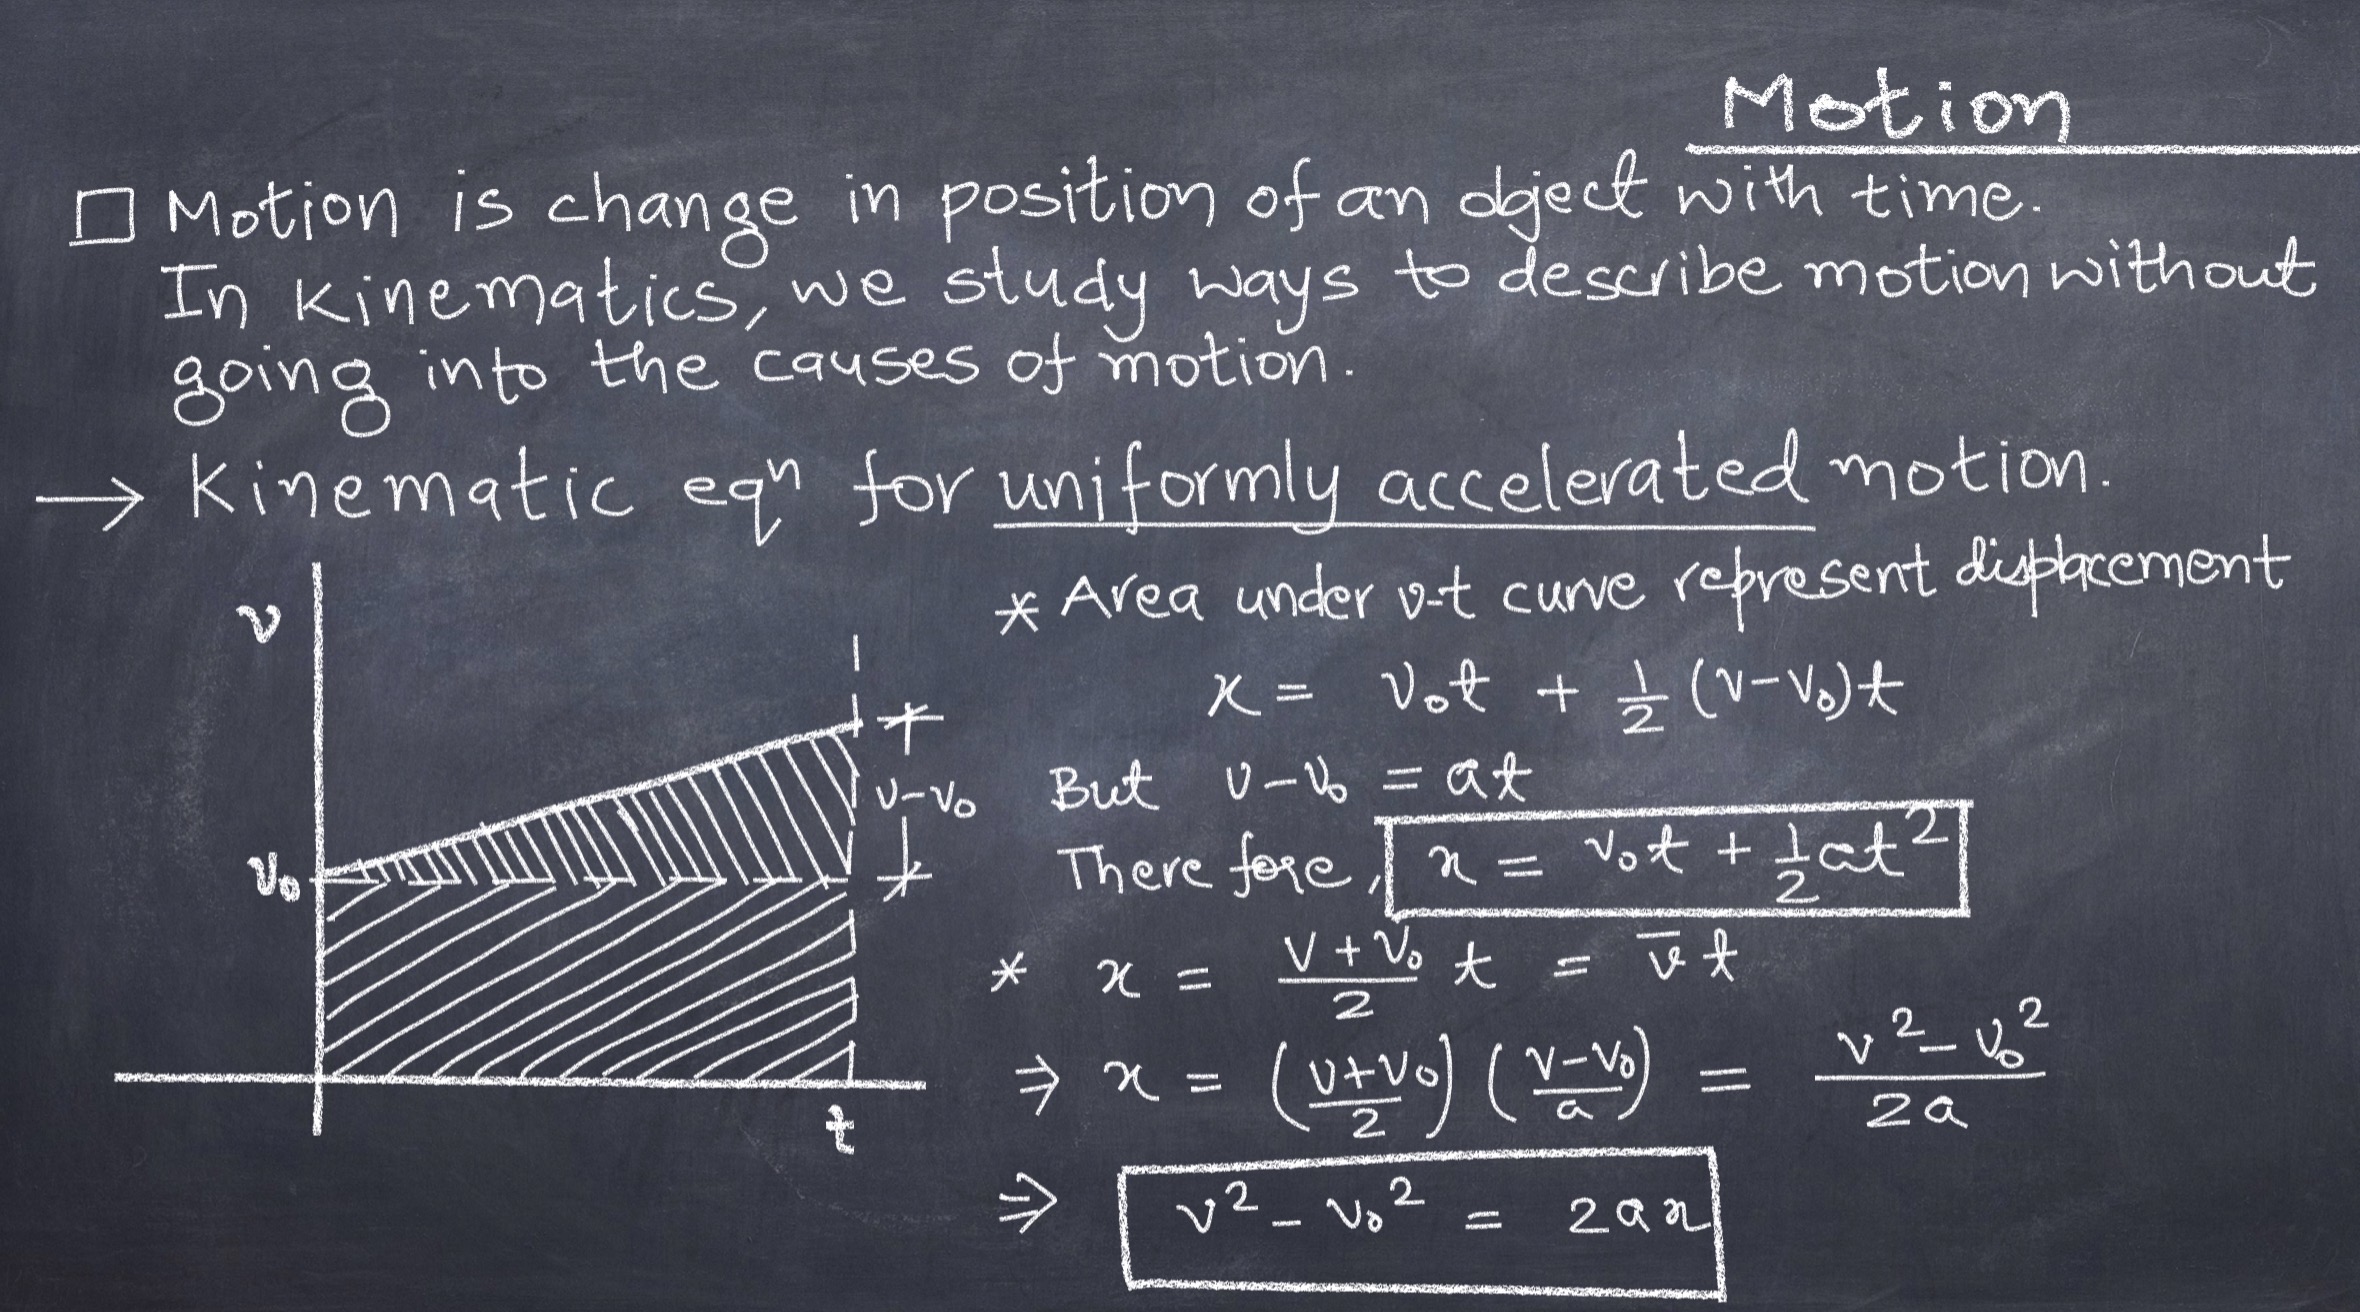 Motion
□ Motion is change in position of an object with time.
In Kinematics, we study ways to describe motion without
going into the causes of motion.
→ Kinematic eqⁿ for uniformly accelerated motion.
* Area under v-t curve represent displacement
v
x = v₀t + ½ (v-v₀)t
v-v₀
But v-v₀ = at
v₀
Therefore, x = v₀t + ½at²
* x = (v+v₀)/2 t = v̄t
⇒ x = ((v+v₀)/2) ((v-v₀)/a) = (v²-v₀²)/2a
t
⇒ v² - v₀² = 2ax